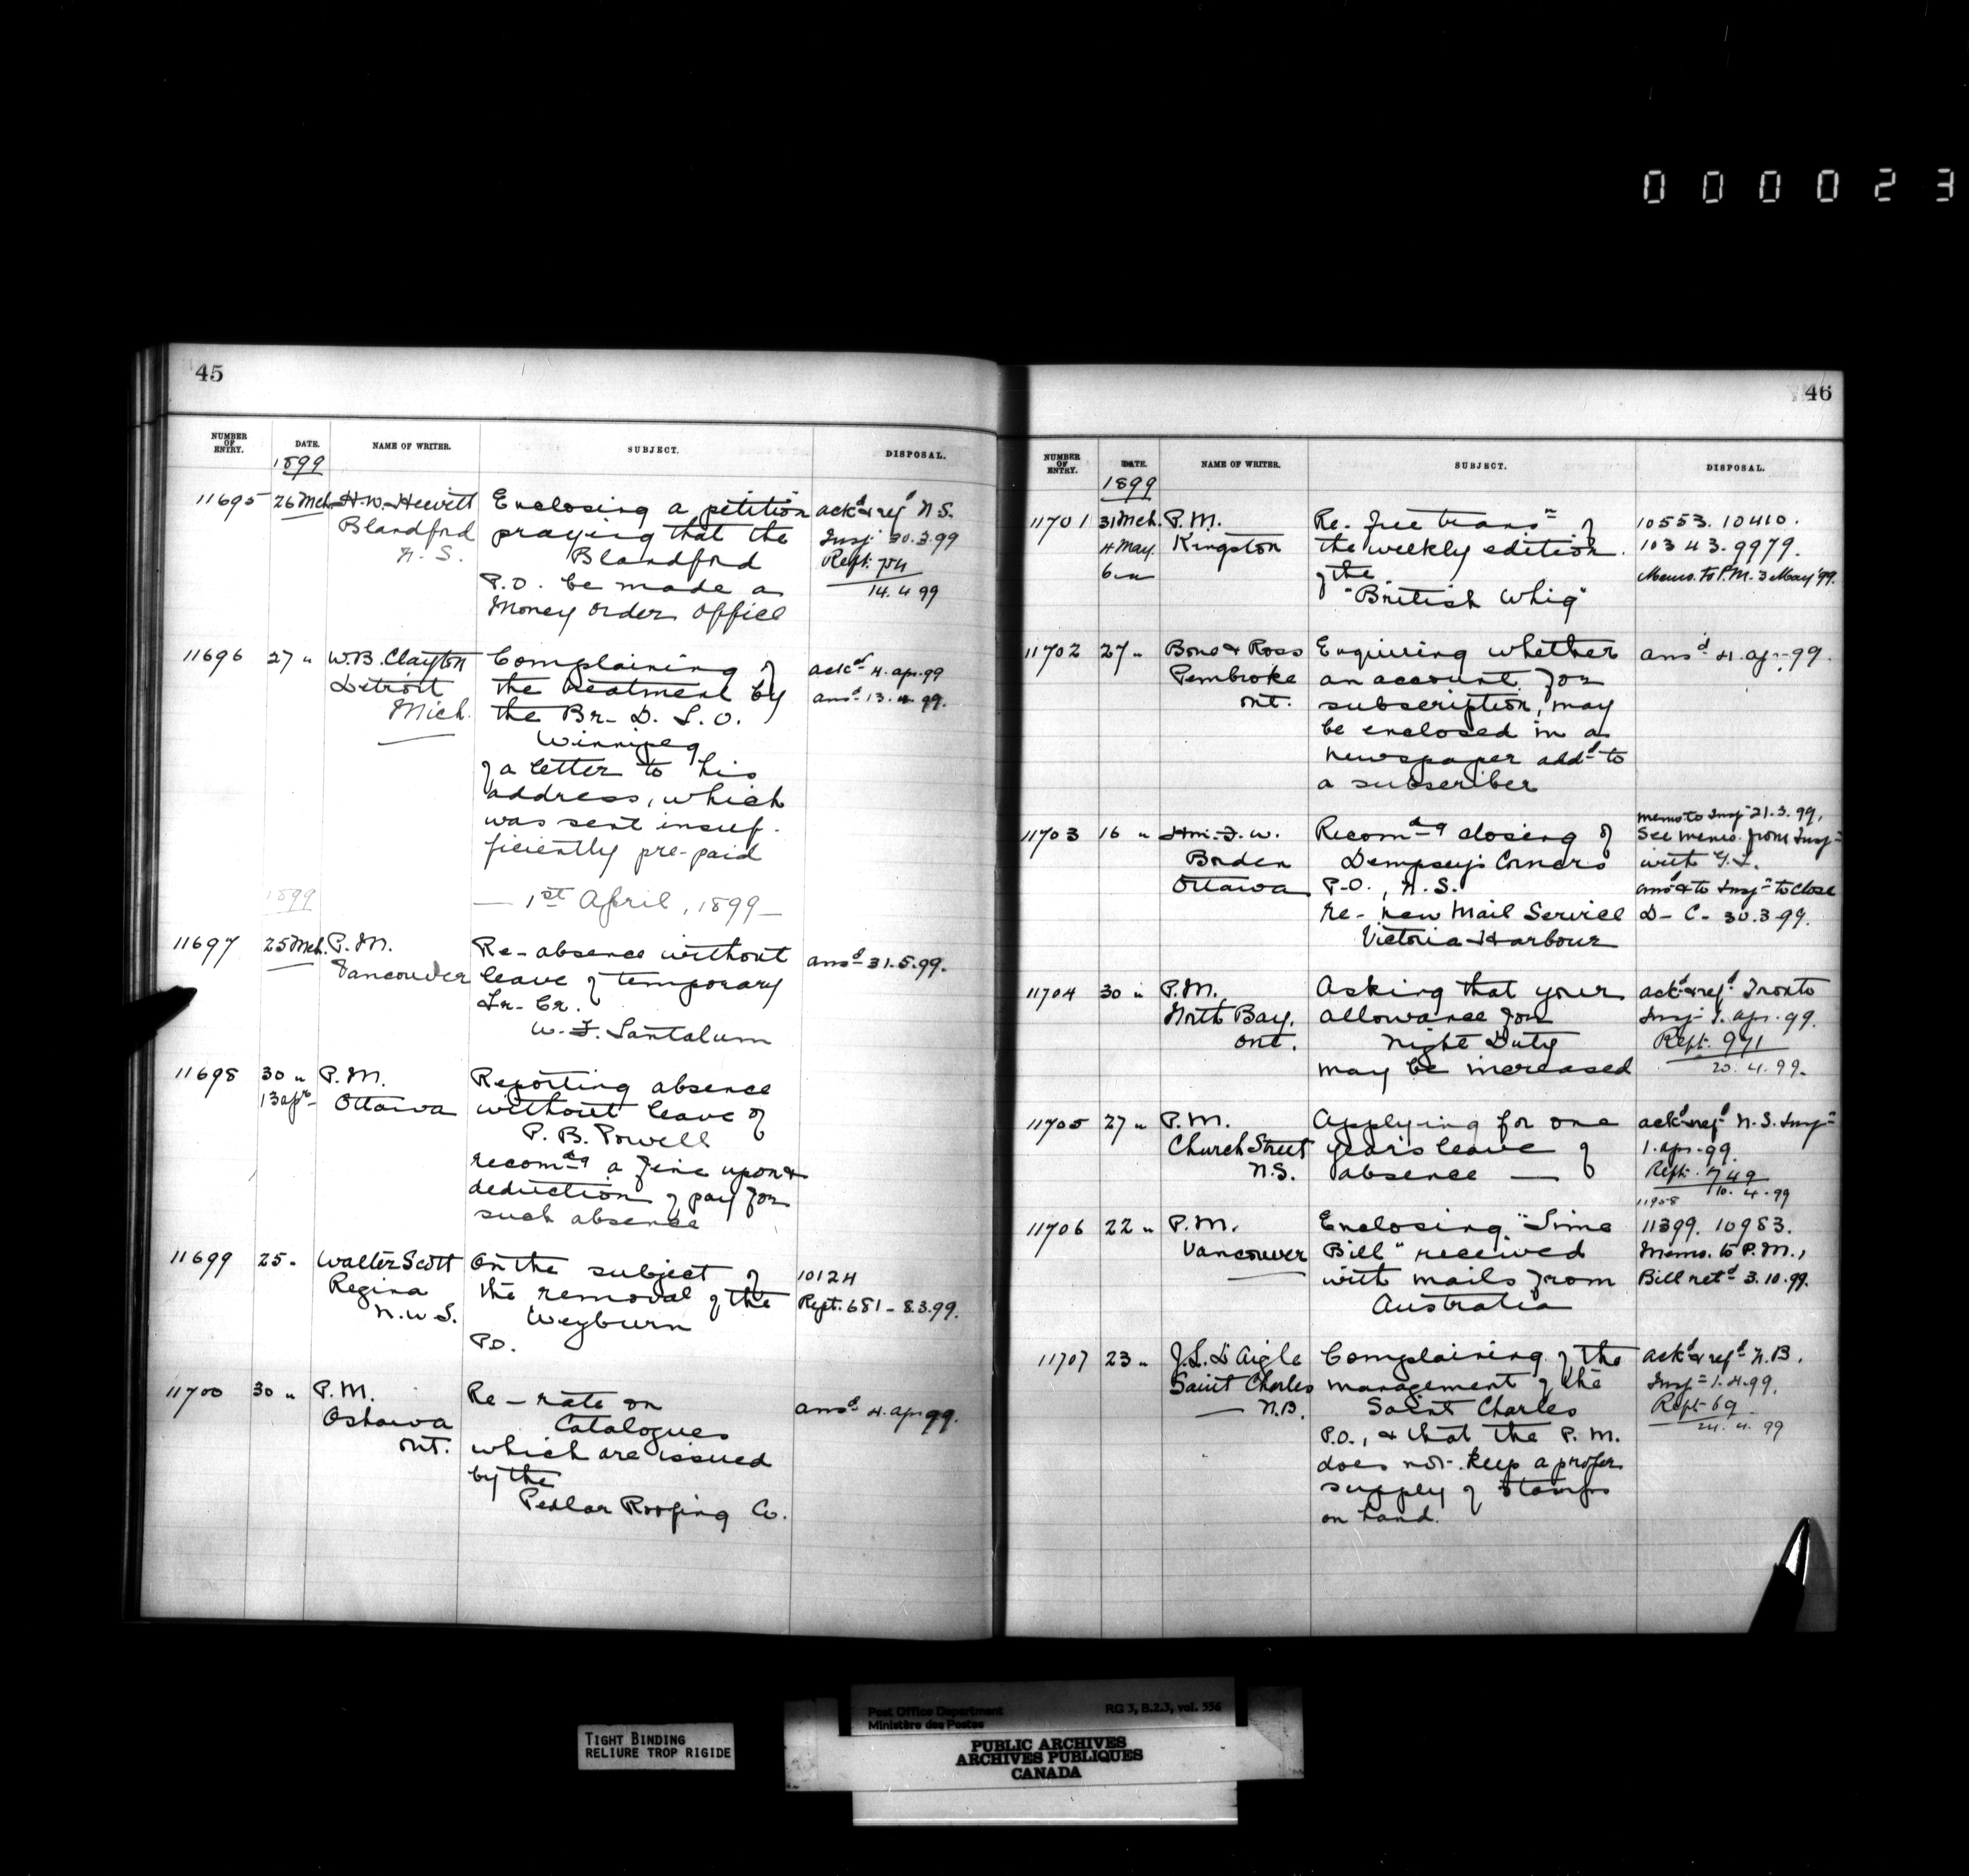 000023
45
NUMBER OF ENTRY. DATE. NAME OF WRITER. SUBJECT. DISPOSAL.
1899
11695 26 Mch. H. W. Hewitt Enclosing a petition ackd & refd N.S.
Blandford praying that the Insp 30.3.99
N.S. Blandford Rept. 754
P.O. be made a 14.4.99
Money Order Office
11696 27 " W.B. Clayton Complaining of ackd 4. apr. 99
Detroit the treatment by ansd 13.4.99.
Mich. the Br. D. L. O.
Winnipeg
of a letter to his
address, which
was sent insuf-
ficiently pre-paid
1899 — 1st April, 1899 —
11697 25 Mch. P.M. Re- absence without ansd 31.5.99.
Vancouver leave of temporary
Lr. Cr.
W. F. Santalum
11698 30 " P.M. Reporting absence
13 apr Ottawa without leave of
P. B. Powell
recomdg a fine upon &
deduction of pay for
such absence
11699 25 " Walter Scott On the subject of 10124
Regina the removal of the Rept. 681 - 8.3.99.
N.W.T. Weyburn
P.O.
11700 30 " P.M. Re- rate on ansd 4. apr 99.
Oshawa Catalogues
Ont. which are issued
by the
Pedlar Roofing Co.
46
NUMBER OF ENTRY. DATE. NAME OF WRITER. SUBJECT. DISPOSAL.
1899
11701 31 Mch. P.M. Re- free transn of 10553. 10410.
4 May. Kingston the weekly edition 10343. 9979.
6 " of the Memo. to P.M. 3 May '99.
"British Whig"
11702 27 " Bone & Ross Enquiring whether ansd 4. apr. 99.
Pembroke an account for
Ont. subscription, may
be enclosed in a
newspaper addd to
a subscriber
memo to Insp 21.3.99,
11703 16 " Hon. F. W. Recomdg closing of See memo. from Insp
Borden Dempsey's Corners with
Ottawa P.O., N.S. ansd & to Insp to close
re- new Mail Service D- C- 30.3.99.
Victoria Harbour
11704 30 " P.M. Asking that your ackd & refd Tronto
North Bay, allowance for Insp 1. apr. 99.
Ont. Night Duty Rept. 971
may be increased 20.4.99.
11705 27 " P.M. Applying for one ackd & refd N.S. Insp
Church Street year's leave of 1. apr. 99.
N.S. absence — Rept. 749
11958 10.4.99
11706 22 " P.M. Enclosing "Time 11399. 10983.
Vancouver Bill" received Memo. to P.M.,
with mails from Bill retd 3.10.99.
Australia
11707 23 " J.L. D'Aigle Complaining of the ackd & refd N.B.
Saint Charles management of the Insp 1.4.99.
N.B. Saint Charles Rept 69
P.O., & that the P.M. 24.4.99
does not keep a proper
supply of stamps
on hand.
TIGHT BINDING
RELIURE TROP RIGIDE
Post Office Department RG 3, B.2.3, vol. 556
Ministère des Postes
PUBLIC ARCHIVES
ARCHIVES PUBLIQUES
CANADA